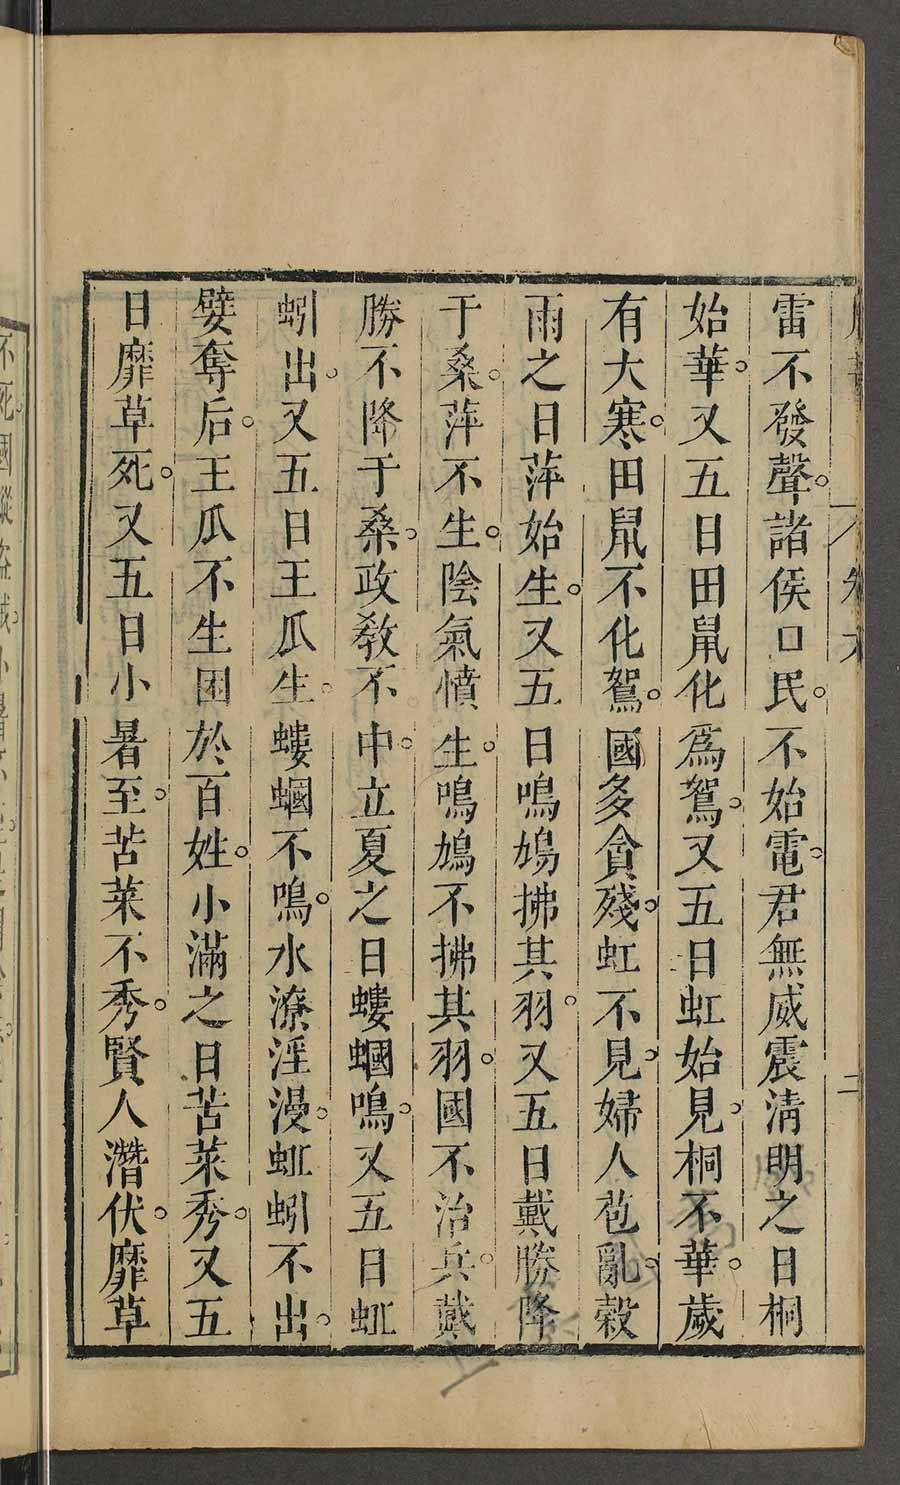 雷不發聲。諸侯口民。不始電。君無威震淸明之日桐
始華。又五日田鼠化爲鴽。又五日虹始見。桐不華。歲
有大寒。田鼠不化鴽。國多貪殘。虹不見。婦人苞亂。穀
雨之日萍始生。又五日鳴鳩拂其羽。又五日戴勝降
于桑。萍不生。陰氣憤生。鳴鳩不拂其羽。國不治兵。戴
勝不降于桑。政敎不中。立夏之日螻蟈鳴。又五日蚯
蚓出。又五日王瓜生。螻蟈不鳴。水潦淫漫。蚯蚓不出。
嬖奪后。王瓜不生困於百姓。小滿之日苦菜秀。又五
日靡草死。又五日小暑至。苦菜不秀。賢人潛伏。靡草